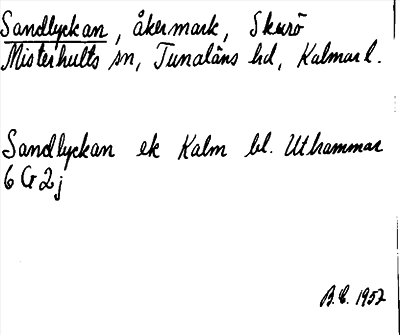 Sandlyckan, åkermark, Skurö
Misterhults sn, Tunaläns hd, Kalmar l.
Sandlyckan ek Kalm bl. Uthammar
6 G 2 j
B.E. 1952